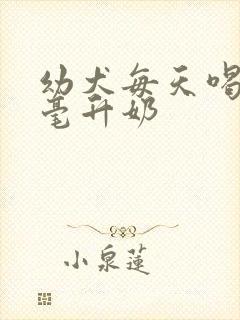 幼犬每天喝
毫升奶
小泉蓮